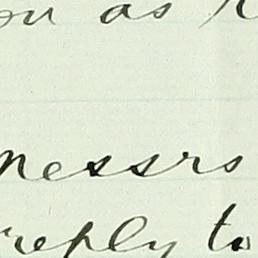 as
Messrs
reply to